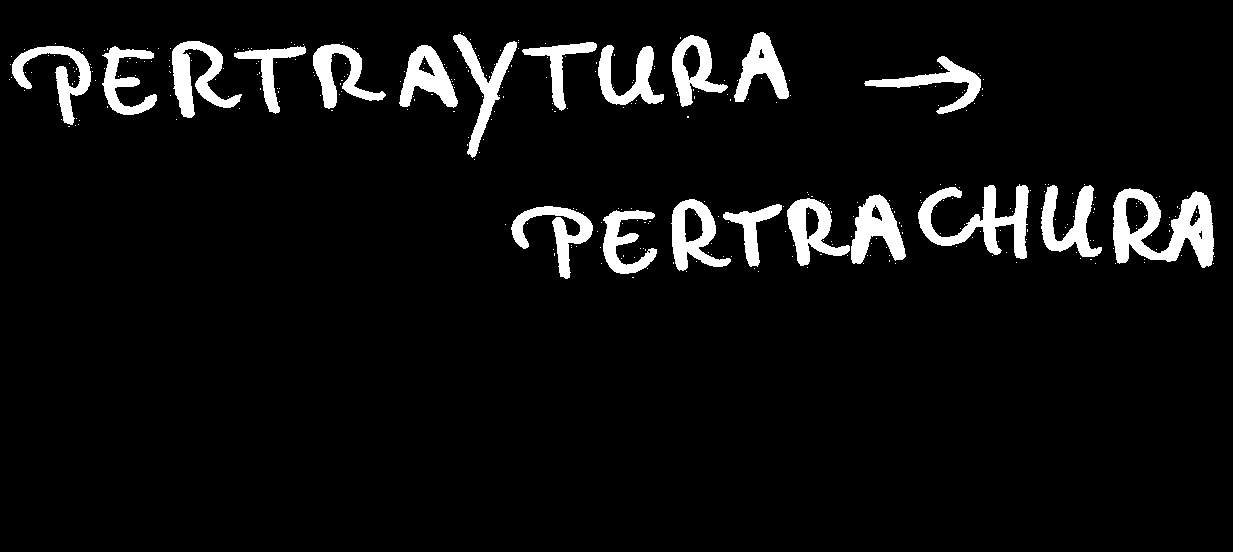 PERTRAYTURA →
PERTRACHURA